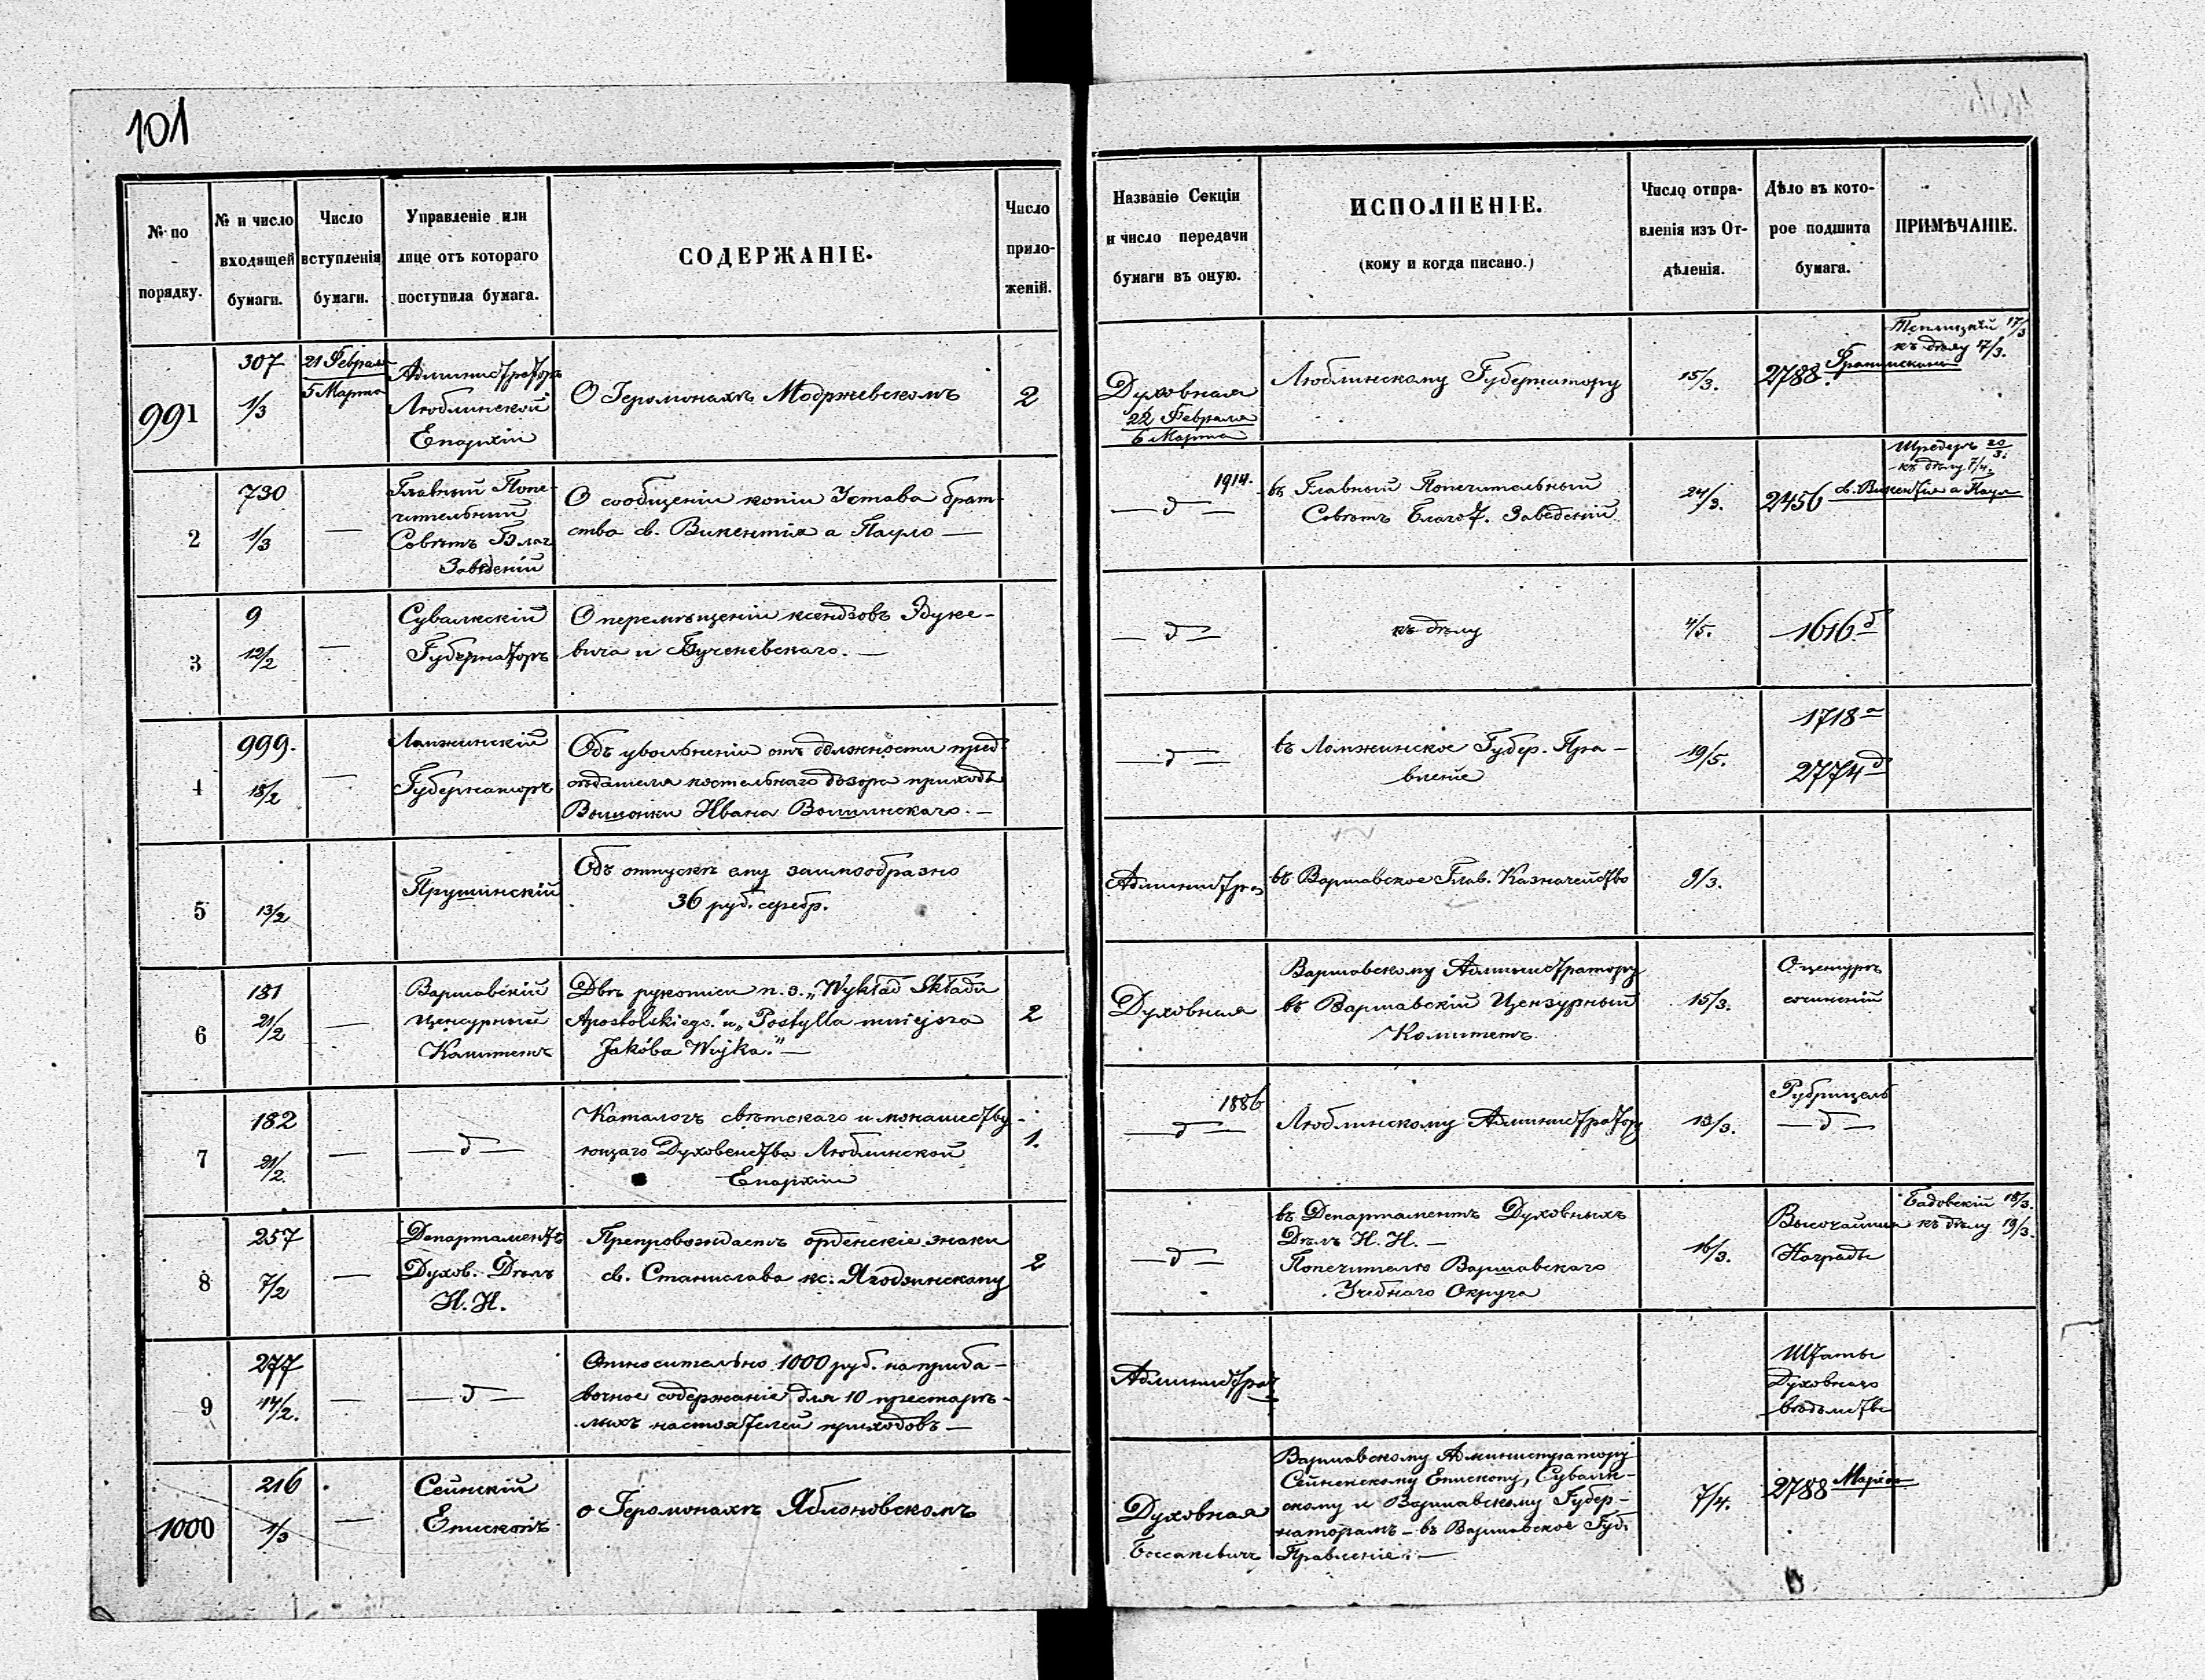 101
№ по
порядку.
№ и число
входящей
бумаги.
Число
вступленія
бумаги.
Управленіе или
лице отъ котораго
поступила бумага.
СОДЕРЖАНІЕ.
Число
прило-
женій.
Названіе Секціи
и число передачи
бумаги въ оную.
ИСПОЛНЕНІЕ.
(кому и когда писано.)
Число отпра-
вленія изъ От-
дѣленія.
Дѣло въ кото-
рое подшита
бумага.
ПРИМѢЧАНІЕ.
991
307
1/3
21 Феврал
5 Марта
Администраторъ
Люблинской
Епархіи
О Іеромонахѣ Модржевскомъ
2
Духовная
22 Февраля
6 Марта
Люблинскому Губернатору
15/3.
2788.
17/3
къ дѣлу 17/3.
2
730
1/3
—
Главный Попе-
чительный
Совѣтъ Благ
Заведеній
О сообщеніи копіи Устава брат-
ства св. Викентія а Пауло —
1914.
— д —
въ Главный Попечительный
Совѣтъ Благот. Заведеній
24/3.
2456 св. Викентія а Паул
Шредеръ 20/3.
къ дѣлу 7/4.
3
9
12/2
—
Сувалкскій
Губернаторъ
О перемѣщеніи ксендзовъ Эдуке-
вича и Бученевскаго. —
— д —
къ дѣлу
4/5.
1616 д
4
999.
18/2
—
Ломжинскій
Губернаторъ
Объ увольненіи отъ должности пред-
сѣдателя костельнаго дозора прихода
Вошонки Ивана Вошинскаго. —
— д —
въ Ломжинское Губер. Пра-
вленіе
19/5.
1718 а
2774 д
5
13/2
Прушинскій
Объ отпускѣ ему заимообразно
36 руб. серебр.
Администра
въ Варшавское Глав. Казначейство
9/3.
6
181
21/2
—
Варшавскій
Ценсурный
Комитетъ
Двѣ рукописи п. з. „Wykład Składu
Apostolskiego." и „Postylla mniejsza
Jakóba Wujka." —
2
Духовная
Варшавскому Администратору
въ Варшавскій Цензурный
Комитетъ
15/3.
О цензурѣ
сочиненій
7
182
21/2.
—
— д —
Каталогъ свѣтскаго и монашеству-
ющаго Духовенства Люблинской
Епархіи
1.
1886
— д —
Люблинскому Администратору
13/3.
Рубрицель
— д —
8
257
7/2
—
Департаментъ
Духов. Дѣлъ
И. И.
Препровождаетъ орденскіе знаки
св. Станислава кс. Ягодзинскому
2
— д —
въ Департаментъ Духовныхъ
Дѣлъ И. И. —
Попечителю Варшавскаго
Учебнаго Округа
16/3.
Высочайшія
Награды
Бадовскій 18/3.
къ дѣлу 19/3.
9
277
14/2.
—
— д —
Относительно 1000 руб. на приба-
вочное содержаніе для 10 престарѣ-
лыхъ настоятелей приходовъ —
Администрат
Штаты
Духовнаго
вѣдомства
1000
216
1/3
—
Сейнскій
Епископъ
о Іеромонахѣ Яблоновскомъ
Духовная
Варшавскому Администратору
Сейненскому Епископу, Сувалк-
скому и Варшавскому Губер-
наторамъ – въ Варшавское Губ.
Правленіе. —
7/4.
2788